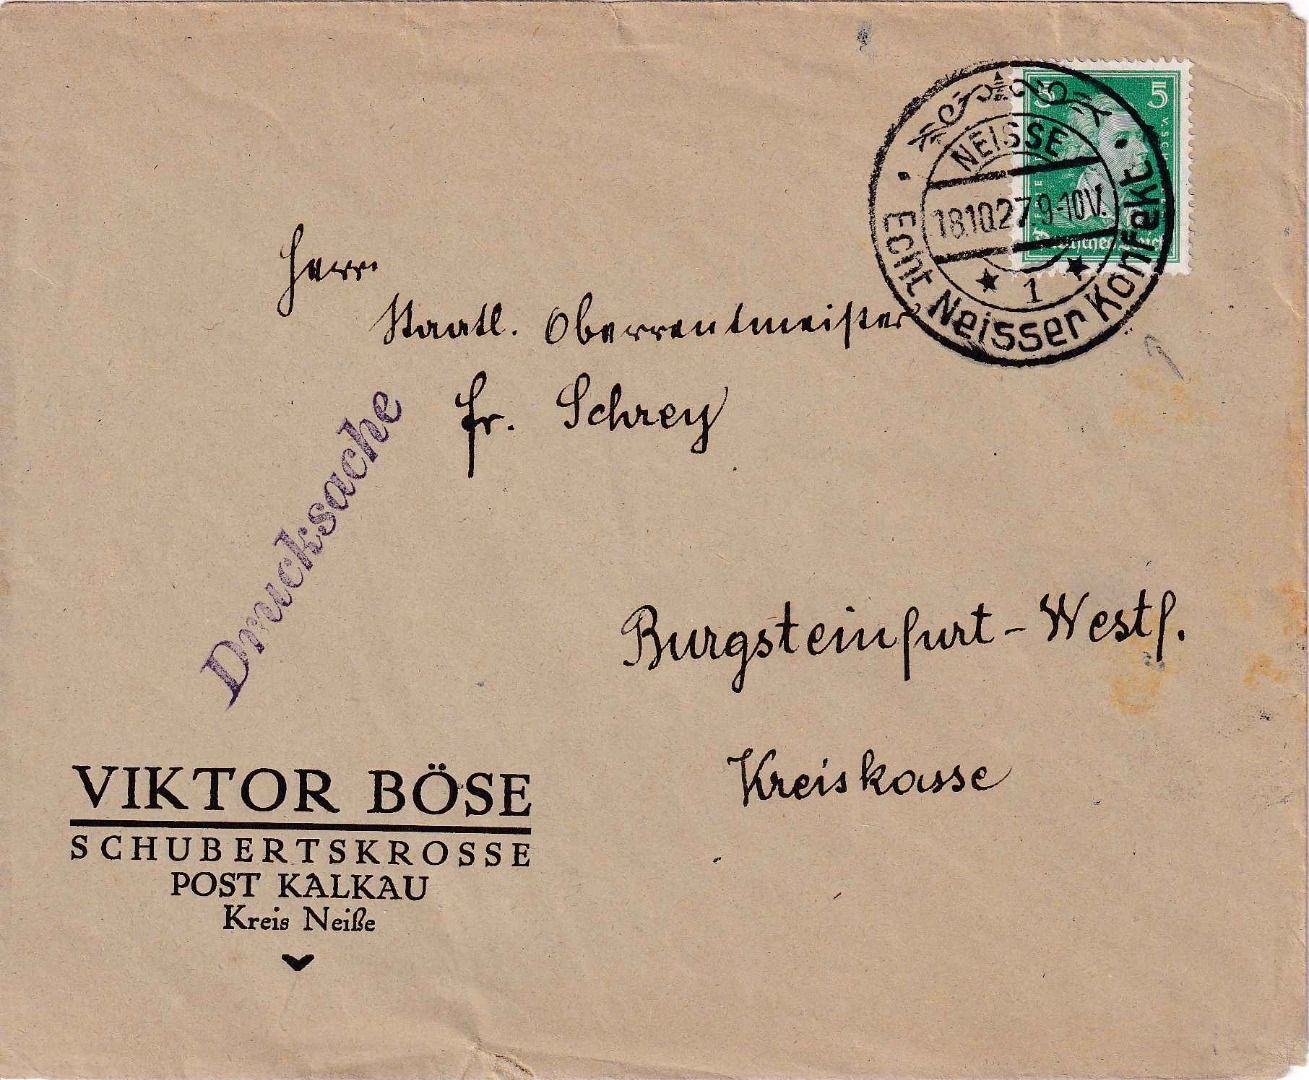 5 5
NEISSE
18.10.27.9-10V.
1
Echt Neisser Konfekt
Herrn
Staatl. Oberrentmeister
Fr. Schrey
Drucksache
Burgsteinfurt-Westf.
Kreiskasse
VIKTOR BÖSE
SCHUBERTSKROSSE
POST KALKAU
Kreis Neiße